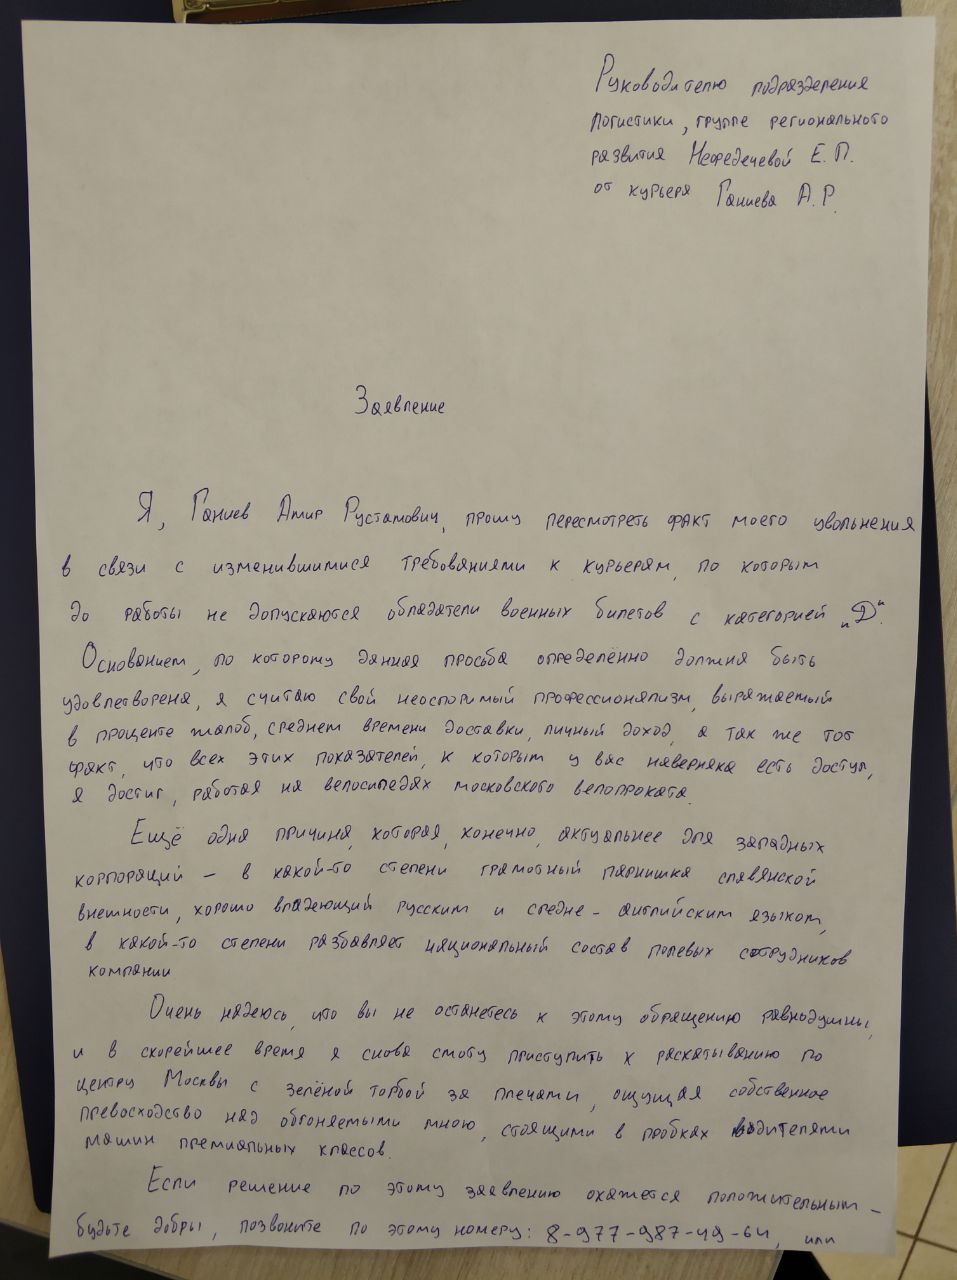 Руководителю подразделения
логистики, группе регионального
развития Нефедечевой Е.П.
от курьера Ганиева А.Р.
Заявление
Я, Ганиев Амир Рустамович, прошу пересмотреть факт моего увольнения
в связи с изменившимися требованиями к курьерам, по которым
до работы не допускаются обладатели военных билетов с категорией "Д".
Основанием, по которому данная просьба определённо должна быть
удовлетворена, я считаю свой неоспоримый профессионализм, выражаемый
в проценте жалоб, среднем времени доставки, личный доход, а так же тот
факт, что всех этих показателей, к которым у вас наверняка есть доступ,
я достиг, работая на велосипедах московского велопроката.
Ещё одна причина, которая, конечно, актуальнее для западных
корпораций – в какой-то степени грамотный парнишка славянской
внешности, хорошо владеющий русским и средне - английским языком,
в какой-то степени разбавляет национальный состав полевых сотрудников
компании
Очень надеюсь, что вы не останетесь к этому обращению равнодушны,
и в скорейшее время я снова смогу приступить к раскатыванию по
центру Москвы с зелёной торбой за плечами, ощущая собственное
превосходство над обгоняемыми мною, стоящими в пробках водителями
машин премиальных классов.
Если решение по этому заявлению окажется положительным –
будьте добры, позвоните по этому номеру: 8-977-987-49-64, или